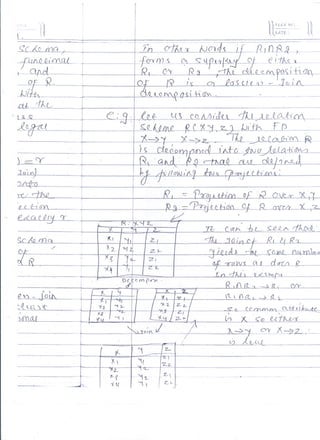 schema,
functional
, and
of R
with
at the
legal
) = r
Join)
into
ection
exactly r
schema
of
d R
en-join
least
In other words if R1∩R2,
forms a superkey of either
R1 or R2, the decomposition
of R is a lossless-Join
decomposition.
e:g let us consider the relation
scheme R(X,Y,Z) with FD
X→Y X→Z. The relation R
is decomposed into two relations
R1 and R2 that are defined
by following two Projections:
R1 = Projection of R over X,Y
R2 = Projection of R over X,Z
R: XYZ
X Y Z
x1 y1 z1
x2 y2 z2
x3 y2 z1
x4 y1 z2
Decompose
X Y
x1 y1
x2 y2
x3 y2
x4 y1
X Z
x1 z1
x2 z2
x3 z1
x4 z2
Join
X Y Z
x1 y1 z1
x2 y2 z2
x3 y2 z1
x4 y1 z2
It can be seen that
the Join of R1 & R2
yields the same number
of rows as does R
In this
R1∩R2 → R1 or
R1∩R2 → R2
so common attribute
is X so either
X→Y or X→Z
is true